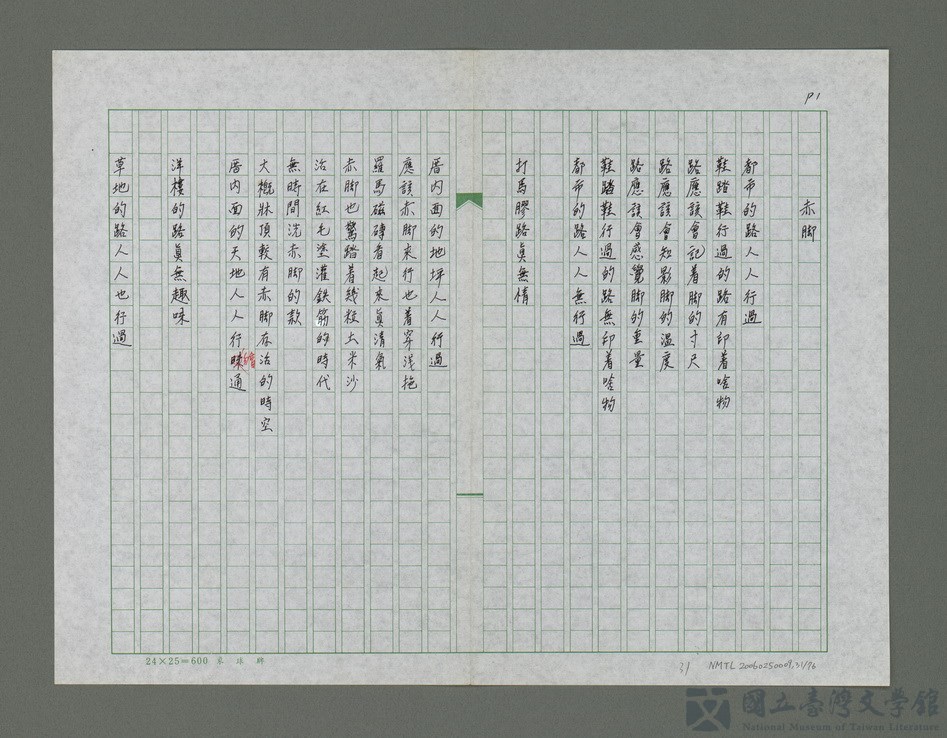 P1
赤脚
都市的路人人行過
鞋踏鞋行過的路有印着啥物
路應該會記着脚的寸尺
路應該會知影脚的溫度
路應該會感覺脚的重量
鞋踏鞋行過的路無印着啥物
都市的路人人無行過
打馬膠路眞無情
厝内面的地坪人人行過
應該赤脚來行也着穿淺拖
羅馬磁磚看起來眞清氣
赤脚也驚踏着幾粒土米沙
治在紅毛塗灌鉄筋的時代
無時間洗赤脚的款
大概牀頂較有赤脚存治的時空
厝内面的天地人人行會通
洋樓的路眞無趣味
草地的路人人也行過
24×25=600
31
NMTL 20060250009,31/76
國立臺灣文學館
National Museum of Taiwan Literature